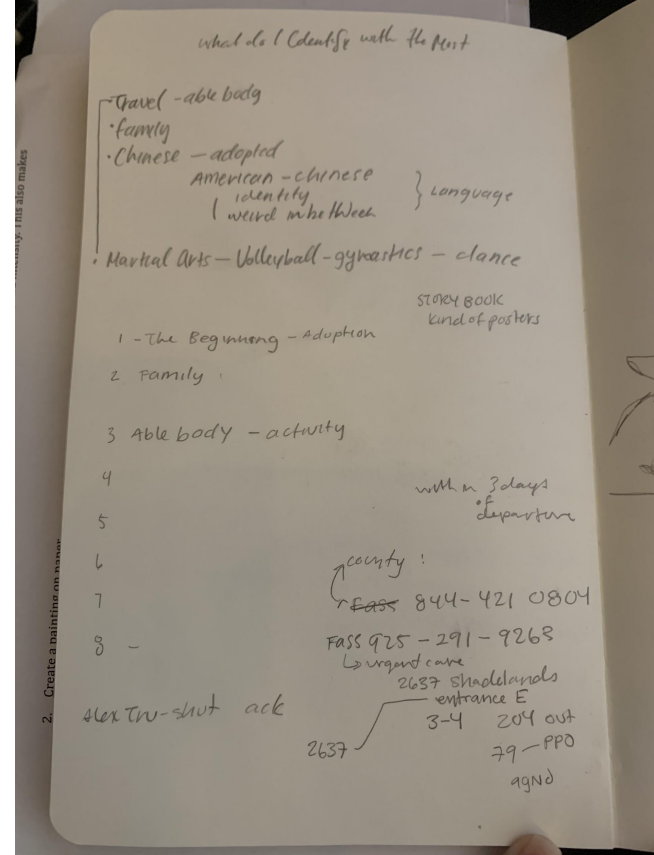 What do I Identify with the Most
Travel - able body
• family
• Chinese - adopted
American - chinese
identity
weird in between
} Language
• Martial Arts - Volleyball - gymastics - dance
STORY BOOK
kind of posters
1 - The Beginning - Adoption
2 Family
3 Able body - activity
4
5
6
7
8 -
within 3 days
of
departure
county :
Fass 844-421 0804
FASS 925-291-9263
↳ urgant care
2637 Shadelands
entrance E
2637
3-4 204 out
79 - PPO
agNd
Alex Tru-shut ack
ntensity. This also makes
2. Create a painting on paper